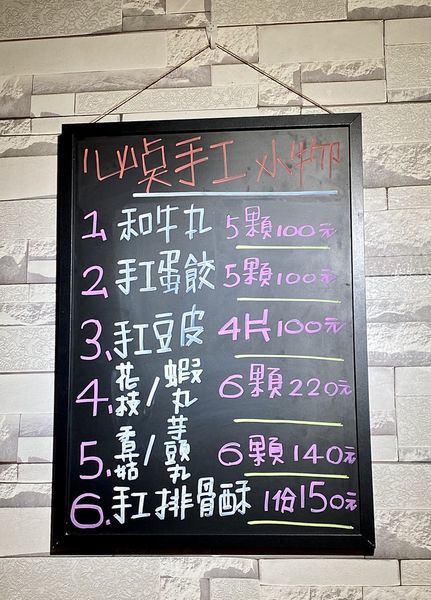 貞手工小物
1. 和牛丸 5顆100元
2. 手工蛋餃 5顆100元
3. 手工豆皮 4片100元
4. 花枝/蝦丸 6顆220元
5. 香菇/芋頭丸 6顆140元
6. 手工排骨酥 1份150元